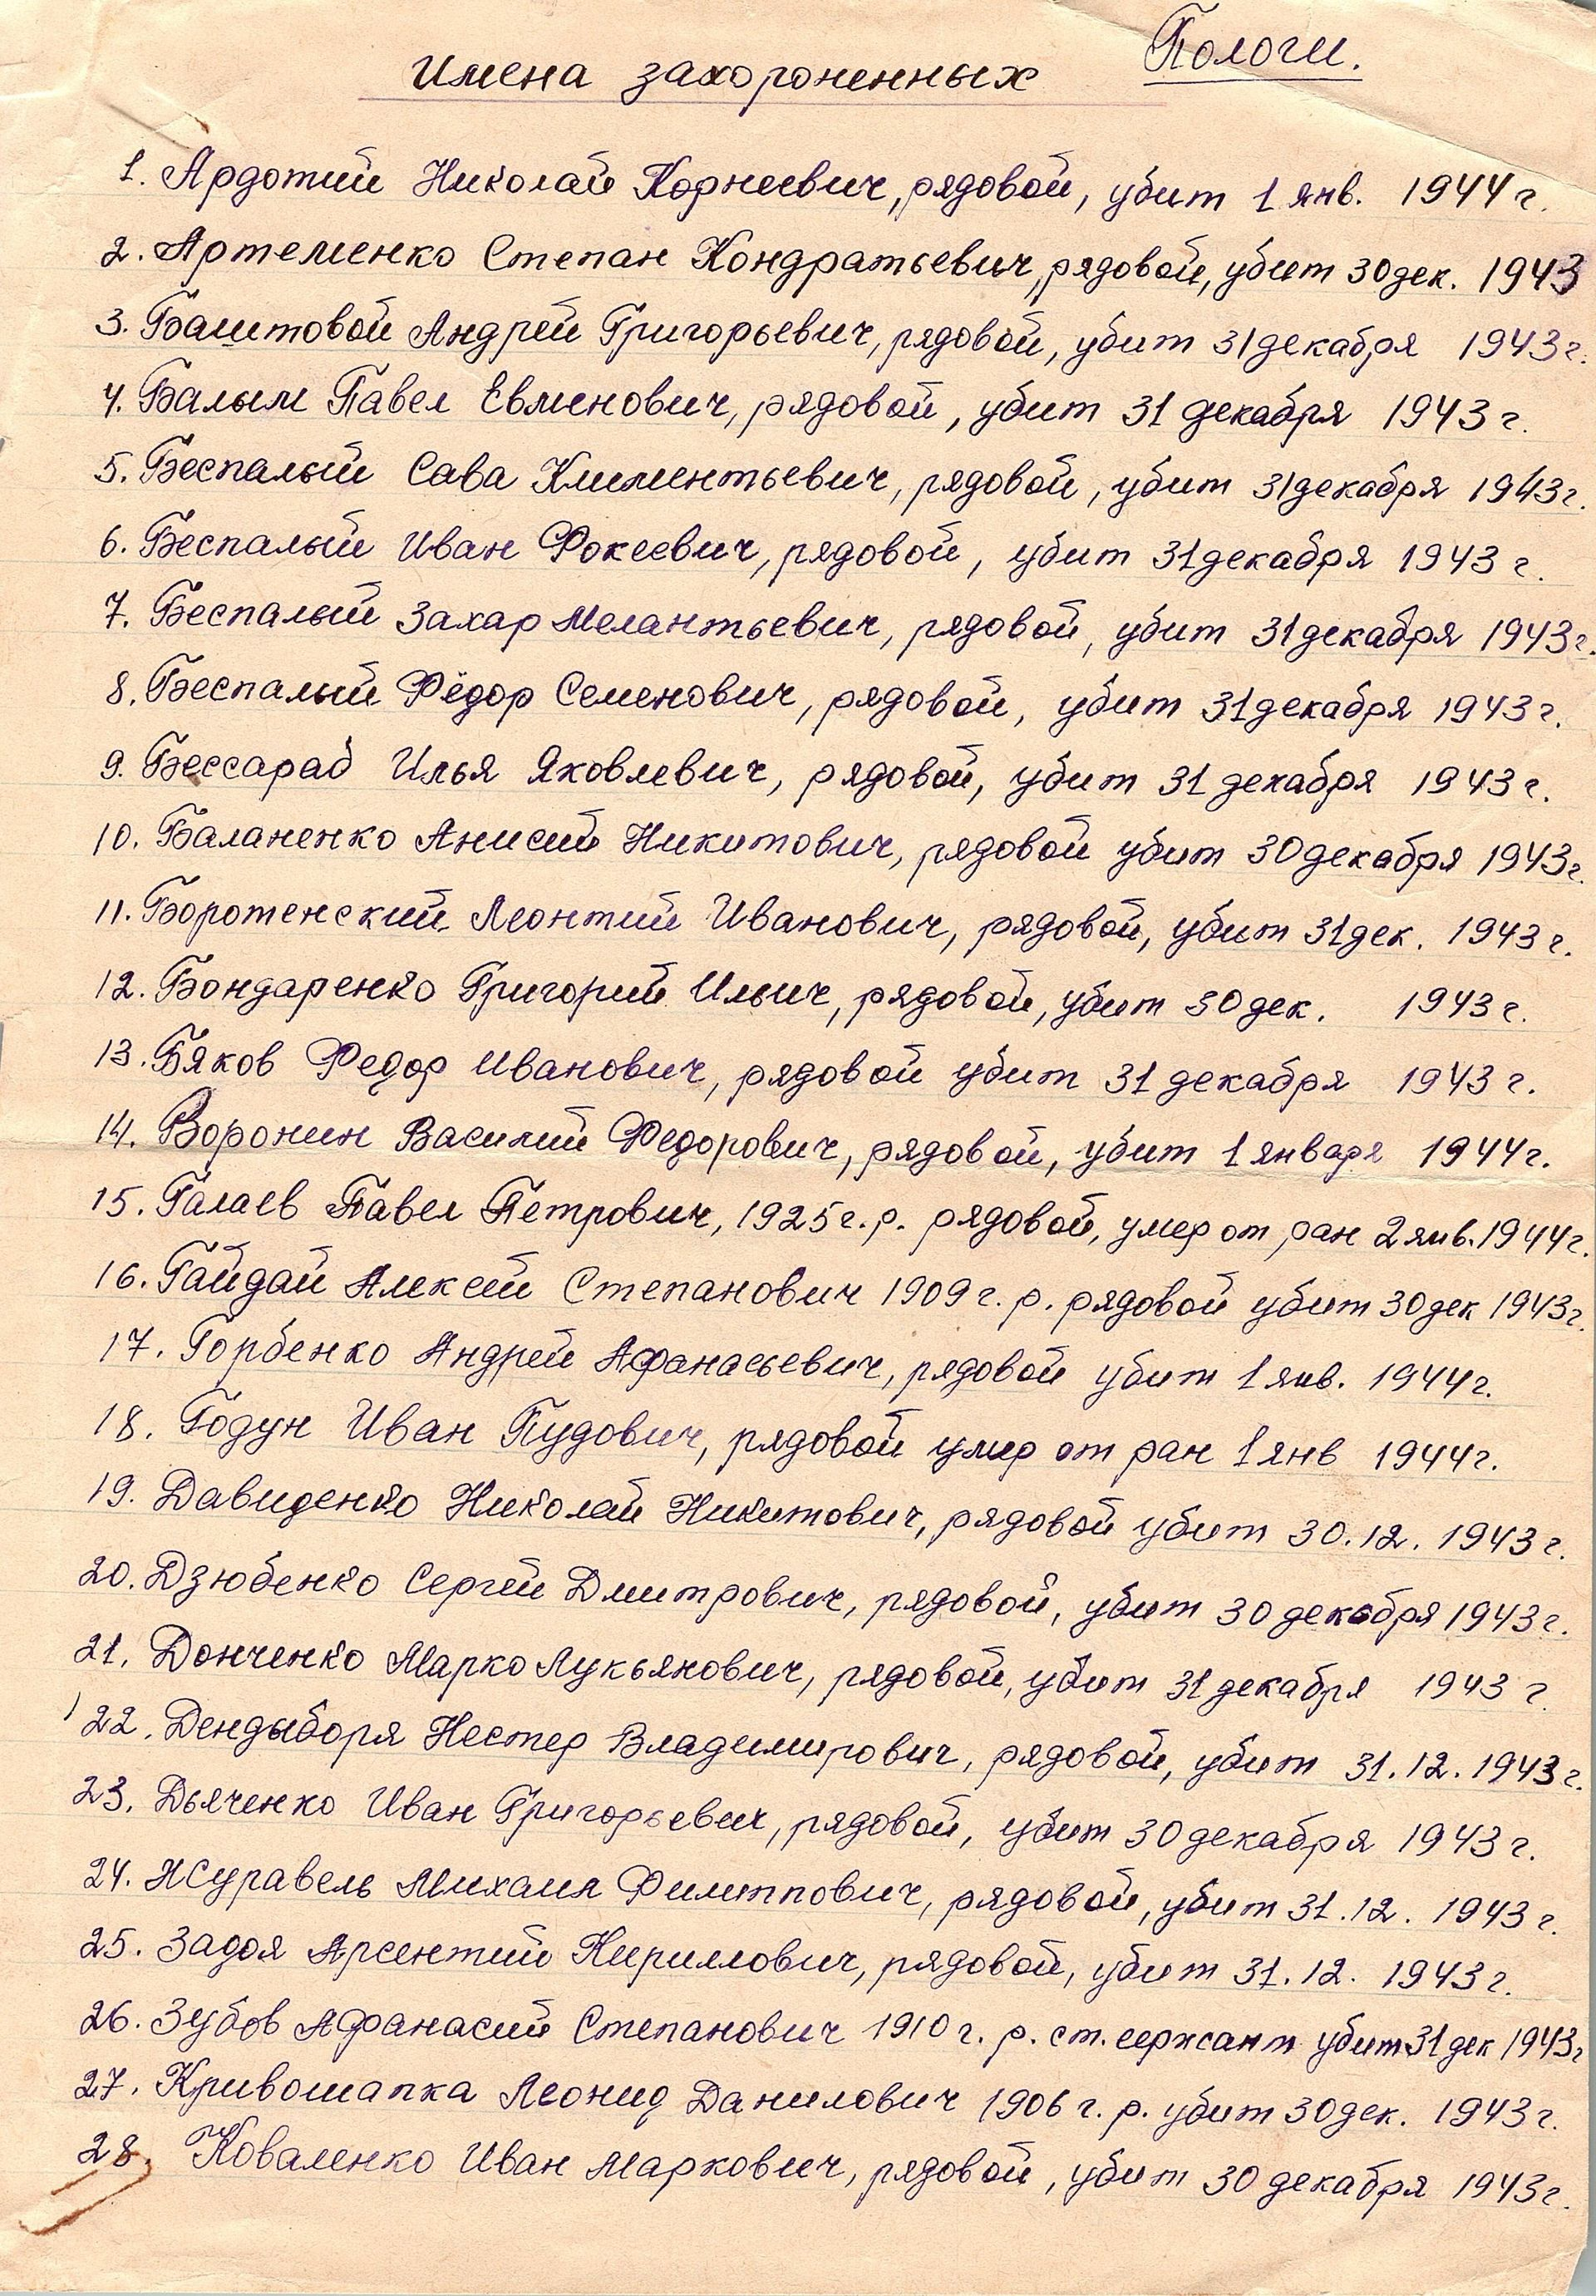 Пологи.
Имена захороненных
1. Ардотий Николай Корнеевич, рядовой, убит 1 янв. 1944 г.
2. Артеменко Степан Кондратьевич, рядовой, убит 30 дек. 1943
3. Баштовой Андрей Григорьевич, рядовой, убит 31 декабря 1943 г.
4. Балым Павел Евменович, рядовой, убит 31 декабря 1943 г.
5. Беспалый Сава Климентьевич, рядовой, убит 31 декабря 1943 г.
6. Беспалый Иван Фокеевич, рядовой, убит 31 декабря 1943 г.
7. Беспалый Захар Мелантьевич, рядовой, убит 31 декабря 1943 г.
8. Беспалый Фёдор Семенович, рядовой, убит 31 декабря 1943 г.
9. Бессараб Илья Яковлевич, рядовой, убит 31 декабря 1943 г.
10. Баланенко Анисий Никитович, рядовой убит 30 декабря 1943 г.
11. Боротенский Леонтий Иванович, рядовой, убит 31 дек. 1943 г.
12. Бондаренко Григорий Ильич, рядовой, убит 30 дек. 1943 г.
13. Бяков Федор Иванович, рядовой убит 31 декабря 1943 г.
14. Воронин Василий Федорович, рядовой, убит 1 января 1944 г.
15. Галаев Павел Петрович, 1925 г. р. рядовой, умер от ран 2 янв. 1944 г.
16. Гайдай Алексей Степанович 1909 г. р. рядовой убит 30 дек 1943 г.
17. Горбенко Андрей Афанасьевич, рядовой убит 1 янв. 1944 г.
18. Годун Иван Пудович, рядовой умер от ран 1 янв 1944 г.
19. Давиденко Николай Никитович, рядовой убит 30. 12. 1943 г.
20. Дзюбенко Сергей Дмитрович, рядовой, убит 30 декабря 1943 г.
21. Донченко Марко Лукьянович, рядовой, убит 31 декабря 1943 г.
22. Дендыборя Нестер Владимирович, рядовой, убит 31. 12. 1943 г.
23. Дьяченко Иван Григорьевич, рядовой, убит 30 декабря 1943 г.
24. Журавель Михаил Филиппович, рядовой, убит 31. 12. 1943 г.
25. Задоя Арсентий Кириллович, рядовой, убит 31. 12. 1943 г.
26. Зубов Афанасий Степанович 1910 г. р. ст. сержант убит 31 дек 1943 г
27. Кривошапка Леонид Данилович 1906 г. р. убит 30 дек. 1943 г.
28. Коваленко Иван Маркович, рядовой, убит 30 декабря 1943 г.